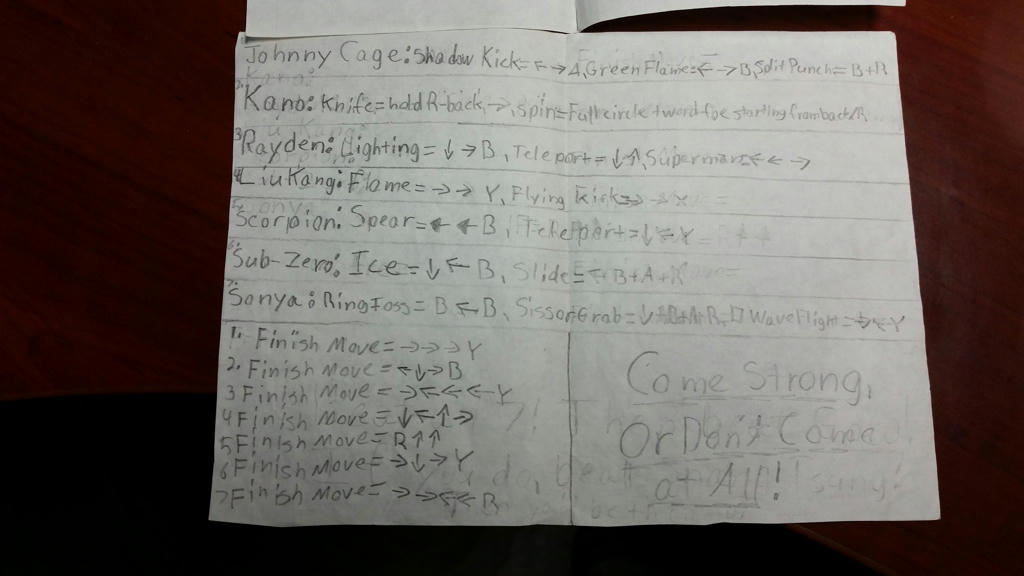 Johnny Cage: Shadow Kick= ← → A, Green Flame= ← → B, Split Punch= B+R
Kano: Knife= hold R-back, →, Spin= Full circle tword foe starting from back/R
3 Rayden: Lighting= ↓ → B, Teleport= ↓ ↑, Superman= ← ← →
4 Liu Kang: Flame= → → Y, Flying Kick= → → X
5. Scorpion: Spear= ← ← B, Teleport= ↓ ← Y
6. Sub-Zero: Ice= ↓ ← B, Slide= ← B+A+R
7. Sonya: Ring Toss= B ← B, Sissor Grab= ↓ +B+A+R, Wave Flight= → ← Y
1. Finish Move= → → → Y
2. Finish Move= ← ↓ → B
3 Finish Move= → ← ← ← Y
4 Finish Move= ↓ ← ↑ →
5 Finish Move= R ↑ ↑
6 Finish Move= → ↓ → Y
7 Finish Move= → → ← ← R
Come Strong,
Or Don't Come
at All!